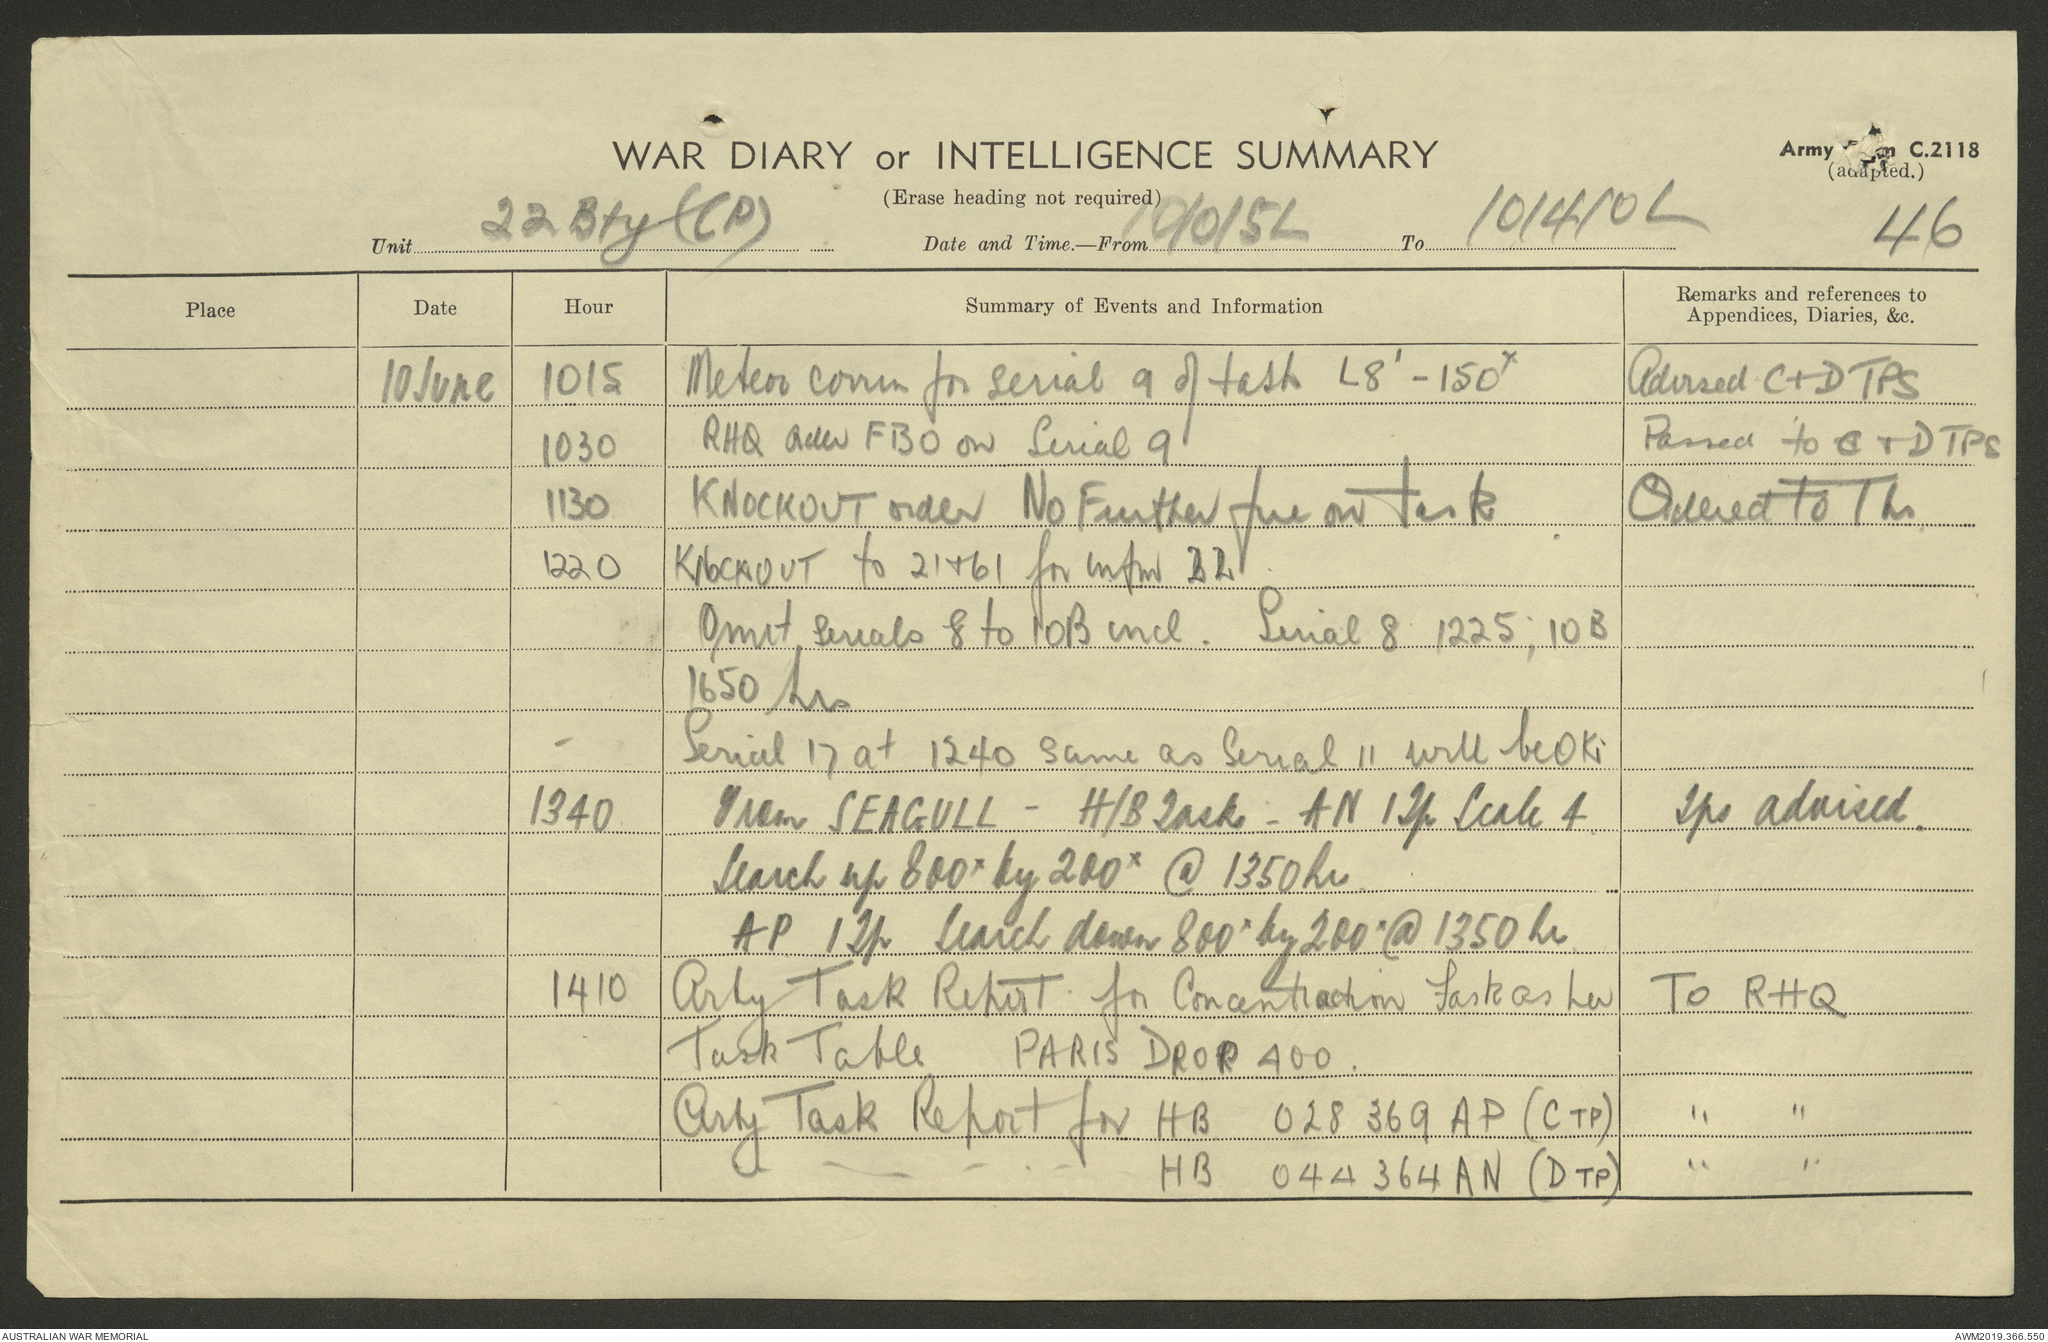 WAR DIARY or INTELLIGENCE SUMMARY
(Erase heading not required)
Army C.2118
(adapted.)
46
Unit 22 Bty (CP) Date and Time.—From 10/015L To 10/1410L
Place Date Hour Summary of Events and Information Remarks and references to
Appendices, Diaries, &c.
10 June 1015 Meteor corrn for serial 9 of task L8' - 150x Advised C + D TPS
1030 RHQ order FBO on Serial 9 Passed to C + D TPS
1130 KNOCKOUT order No Further fire on Task Ordered to
1220 KNOCKOUT to 21+61 for infm 22
Omit serials 8 to 10B incl. Serial 8 1225; 10B
1650 hrs
- Serial 17 at 1240 same as Serial 11 will be OK
1340 From SEAGULL - H/B Task - AN 1 Tp Scale 4 Tps advised.
Search up 800x by 200x @ 1350 hrs
AP 1 Tp Search down 800x by 200x @ 1350 hrs
1410 Arty Task Report for Concentration Task as per To RHQ
Task Table PARIS DROP 400.
Arty Task Report for HB 028 369 AP (C TP) " "
HB 044 364 AN (D TP) " "
AUSTRALIAN WAR MEMORIAL
AWM2019.366.550